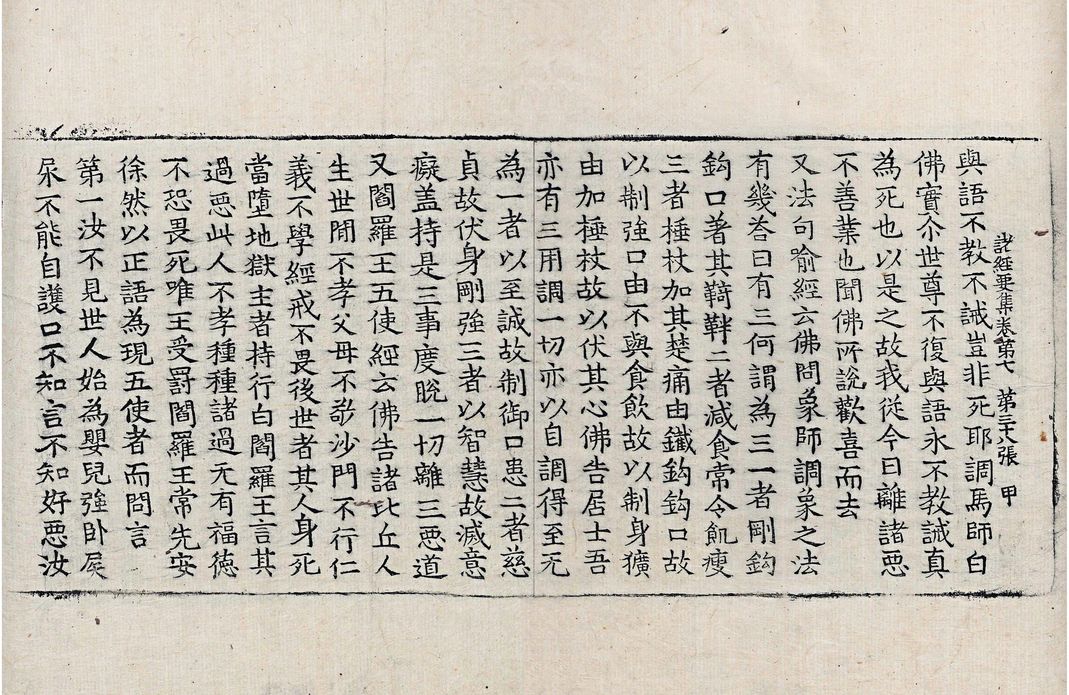 諸經要集卷第七　第三十八張　甲
與語不教不誡豈非死耶調馬師白
佛實尒世尊不復與語永不教誡真
為死也以是之故我從今日離諸惡
不善業也聞佛所說歡喜而去
又法句喻經云佛問象師調象之法
有幾荅曰有三何謂為三一者剛鈎
鈎口著其䩭靽二者減食常令飢瘦
三者捶杖加其楚痛由鐵鈎鈎口故
以制強口由不與食飲故以制身獷
由加捶杖故以伏其心佛告居士吾
亦有三用調一切亦以自調得至无
為一者以至誠故制御口患二者慈
貞故伏身剛強三者以智慧故滅意
癡盖持是三事度脫一切離三惡道
又閻羅王五使經云佛告諸比丘人
生世閒不孝父母不敬沙門不行仁
義不學經戒不畏後世者其人身死
當墮地獄主者持行白閻羅王言其
過惡此人不孝種種諸過无有福德
不恐畏死唯王受罸閻羅王常先安
徐然以正語為現五使者而問言
第一汝不見世人始為嬰兒強卧屎
尿不能自護口不知言不知好惡汝